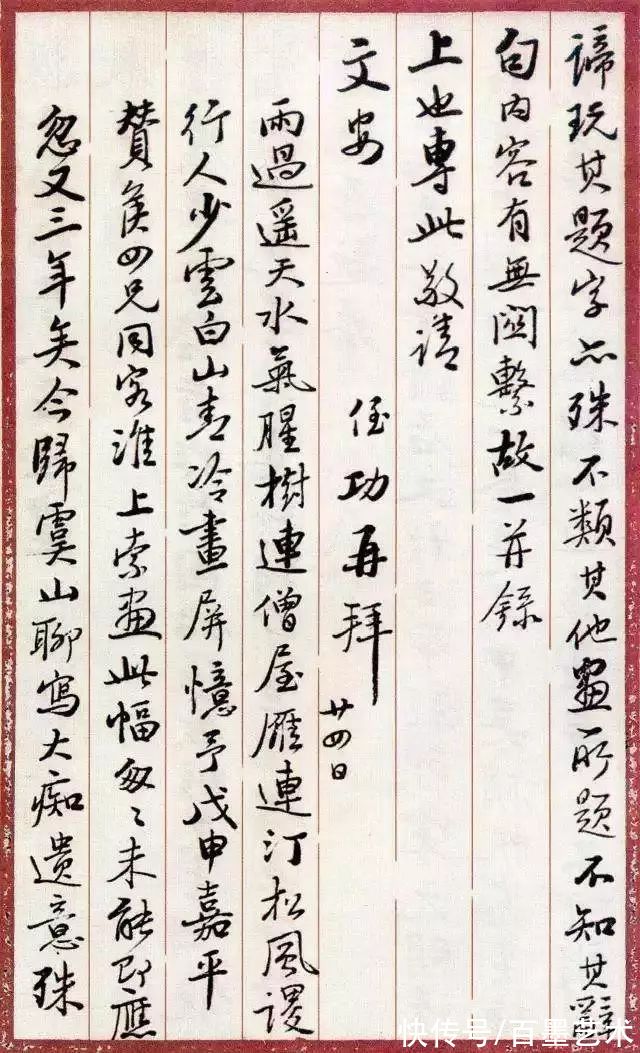 諦玩其題字亦殊不類其他畫所題不知其辭
句內容有無關繫故一并錄
上也專此敬請
文安
侄功再拜
廿四日
雨過遥天水氣腥樹連僧屋雁連汀松風謖
行人少雲白山青冷畫屏憶予戊申嘉平
贊侯四兄同客淮上索畫此幅匆〻未能即應
忽又三年矣今歸虞山聊寫大痴遺意殊
快传号/百墨艺术